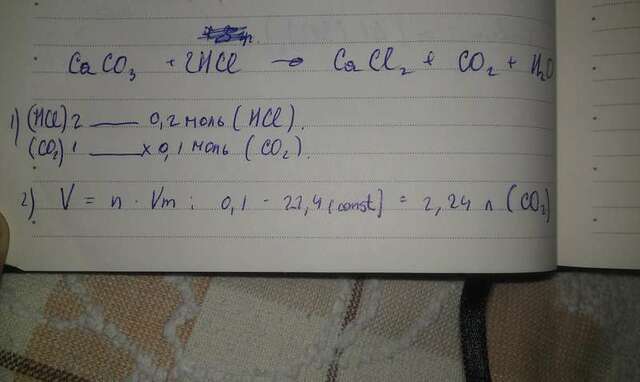 CaCO₃ + 2HCl → CaCl₂ + CO₂ + H₂O
1) (HCl) 2 — 0,2 моль (HCl).
(CO₂) 1 — x 0,1 моль (CO₂).
2) V = n · Vm ; 0,1 - 22,4 (const) = 2,24 л (CO₂)